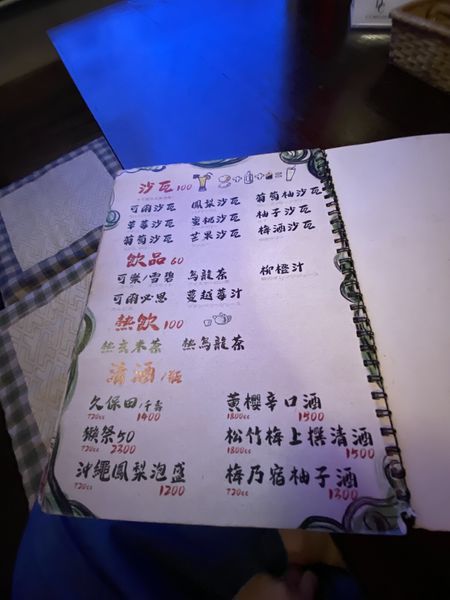 沙瓦 100
可爾沙瓦 鳳梨沙瓦 葡萄柚沙瓦
草莓沙瓦 蜜桃沙瓦 柚子沙瓦
葡萄沙瓦 芒果沙瓦 梅酒沙瓦
飲品 60
可樂/雪碧 烏龍茶 柳橙汁
可爾必思 蔓越莓汁
熱飲 100
熱玄米茶 熱烏龍茶
清酒/瓶
久保田/千壽 黄櫻辛口酒
720cc 1400 1800cc 1500
獺祭50 松竹梅上撰清酒
720cc 2300 1800cc 1500
沖繩鳳梨泡盛 梅乃宿柚子酒
720cc 1200 720cc 1300